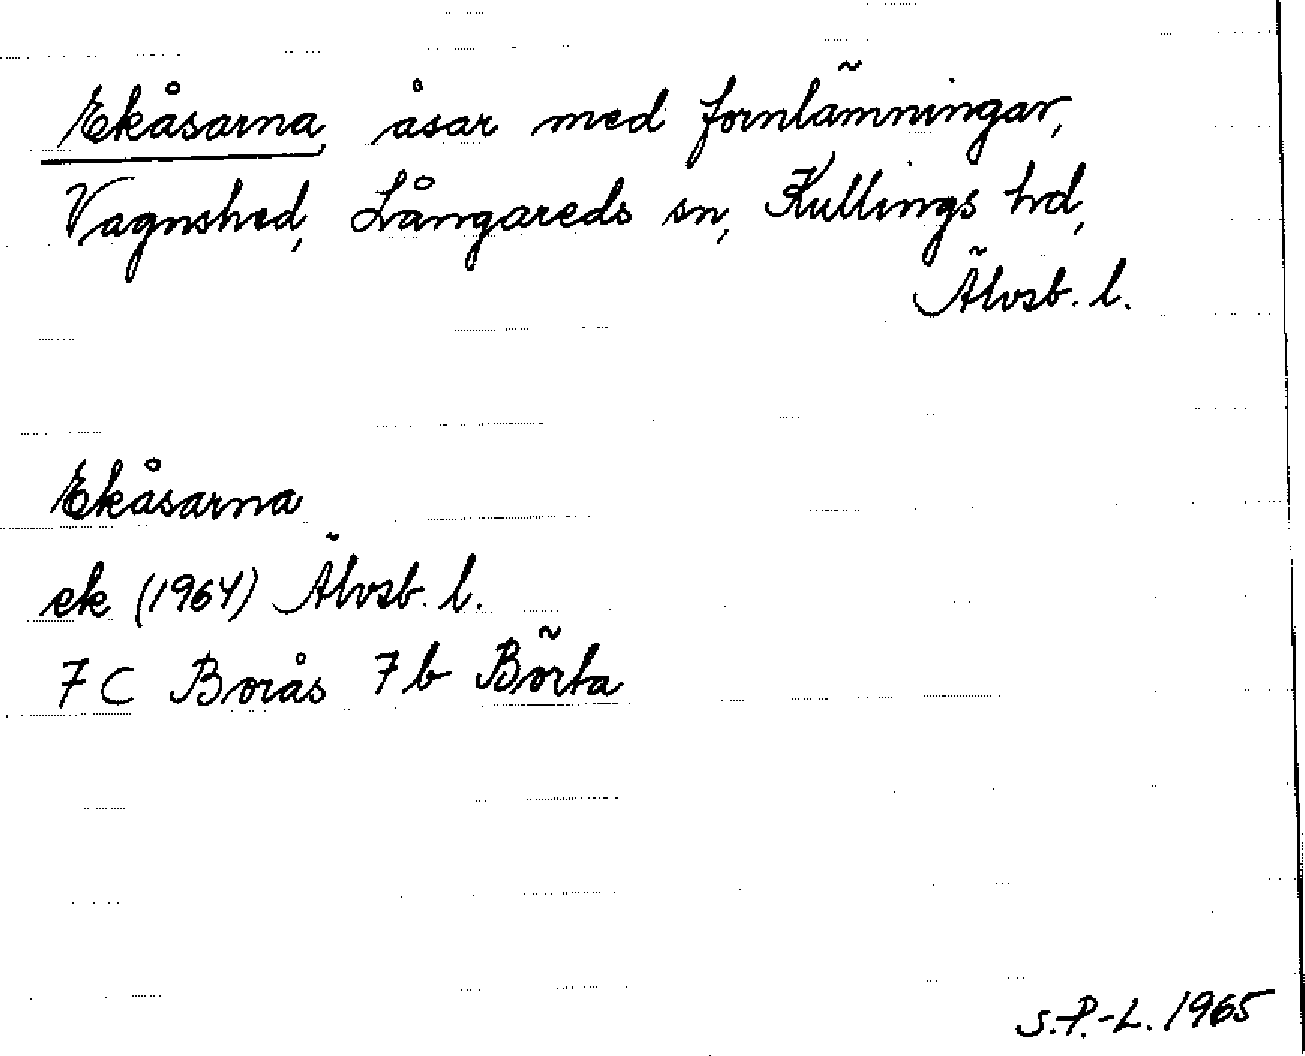 Ekåsarna, åsar med fornlämningar,
Vagnshed, Långareds sn, Kullings hd,
Älvsb. l.
Ekåsarna
ek (1964) Älvsb. l.
7 C Borås 7 b Börta
S.-P.-L. 1965